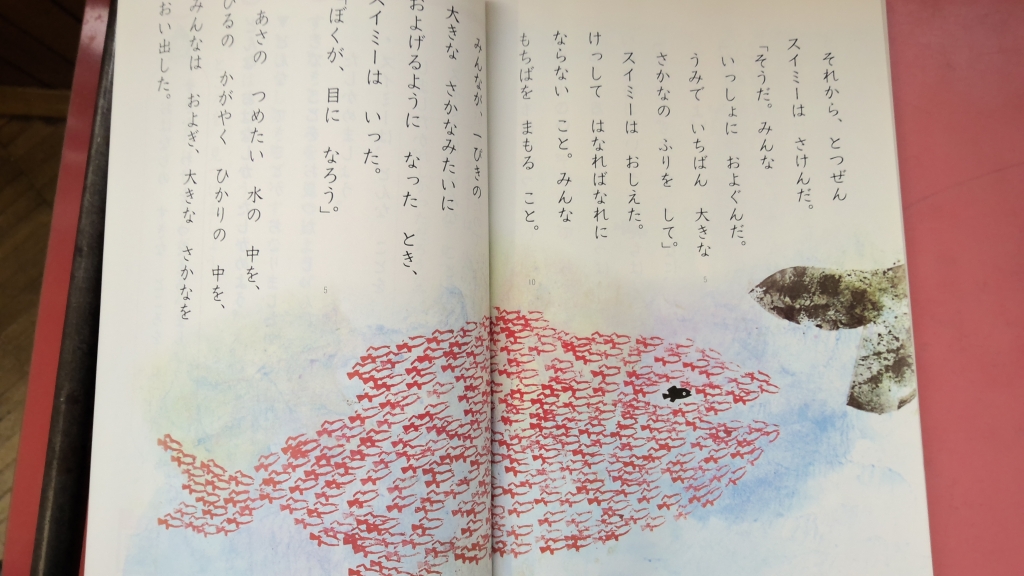 それから、とつぜん
スイミーは さけんだ。
「そうだ。みんな
いっしょに およぐんだ。
うみで いちばん 大きな
さかなの ふりを して。」
スイミーは おしえた。
けっして はなればなれに
ならない こと。みんな
もちばを まもる こと。
みんなが、一ぴきの
大きな さかなみたいに
およげるように なった とき、
スイミーは いった。
「ぼくが、目に なろう。」
あさの つめたい 水の 中を、
ひるの かがやく ひかりの 中を、
みんなは およぎ、大きな さかなを
おい出した。
5
10
5